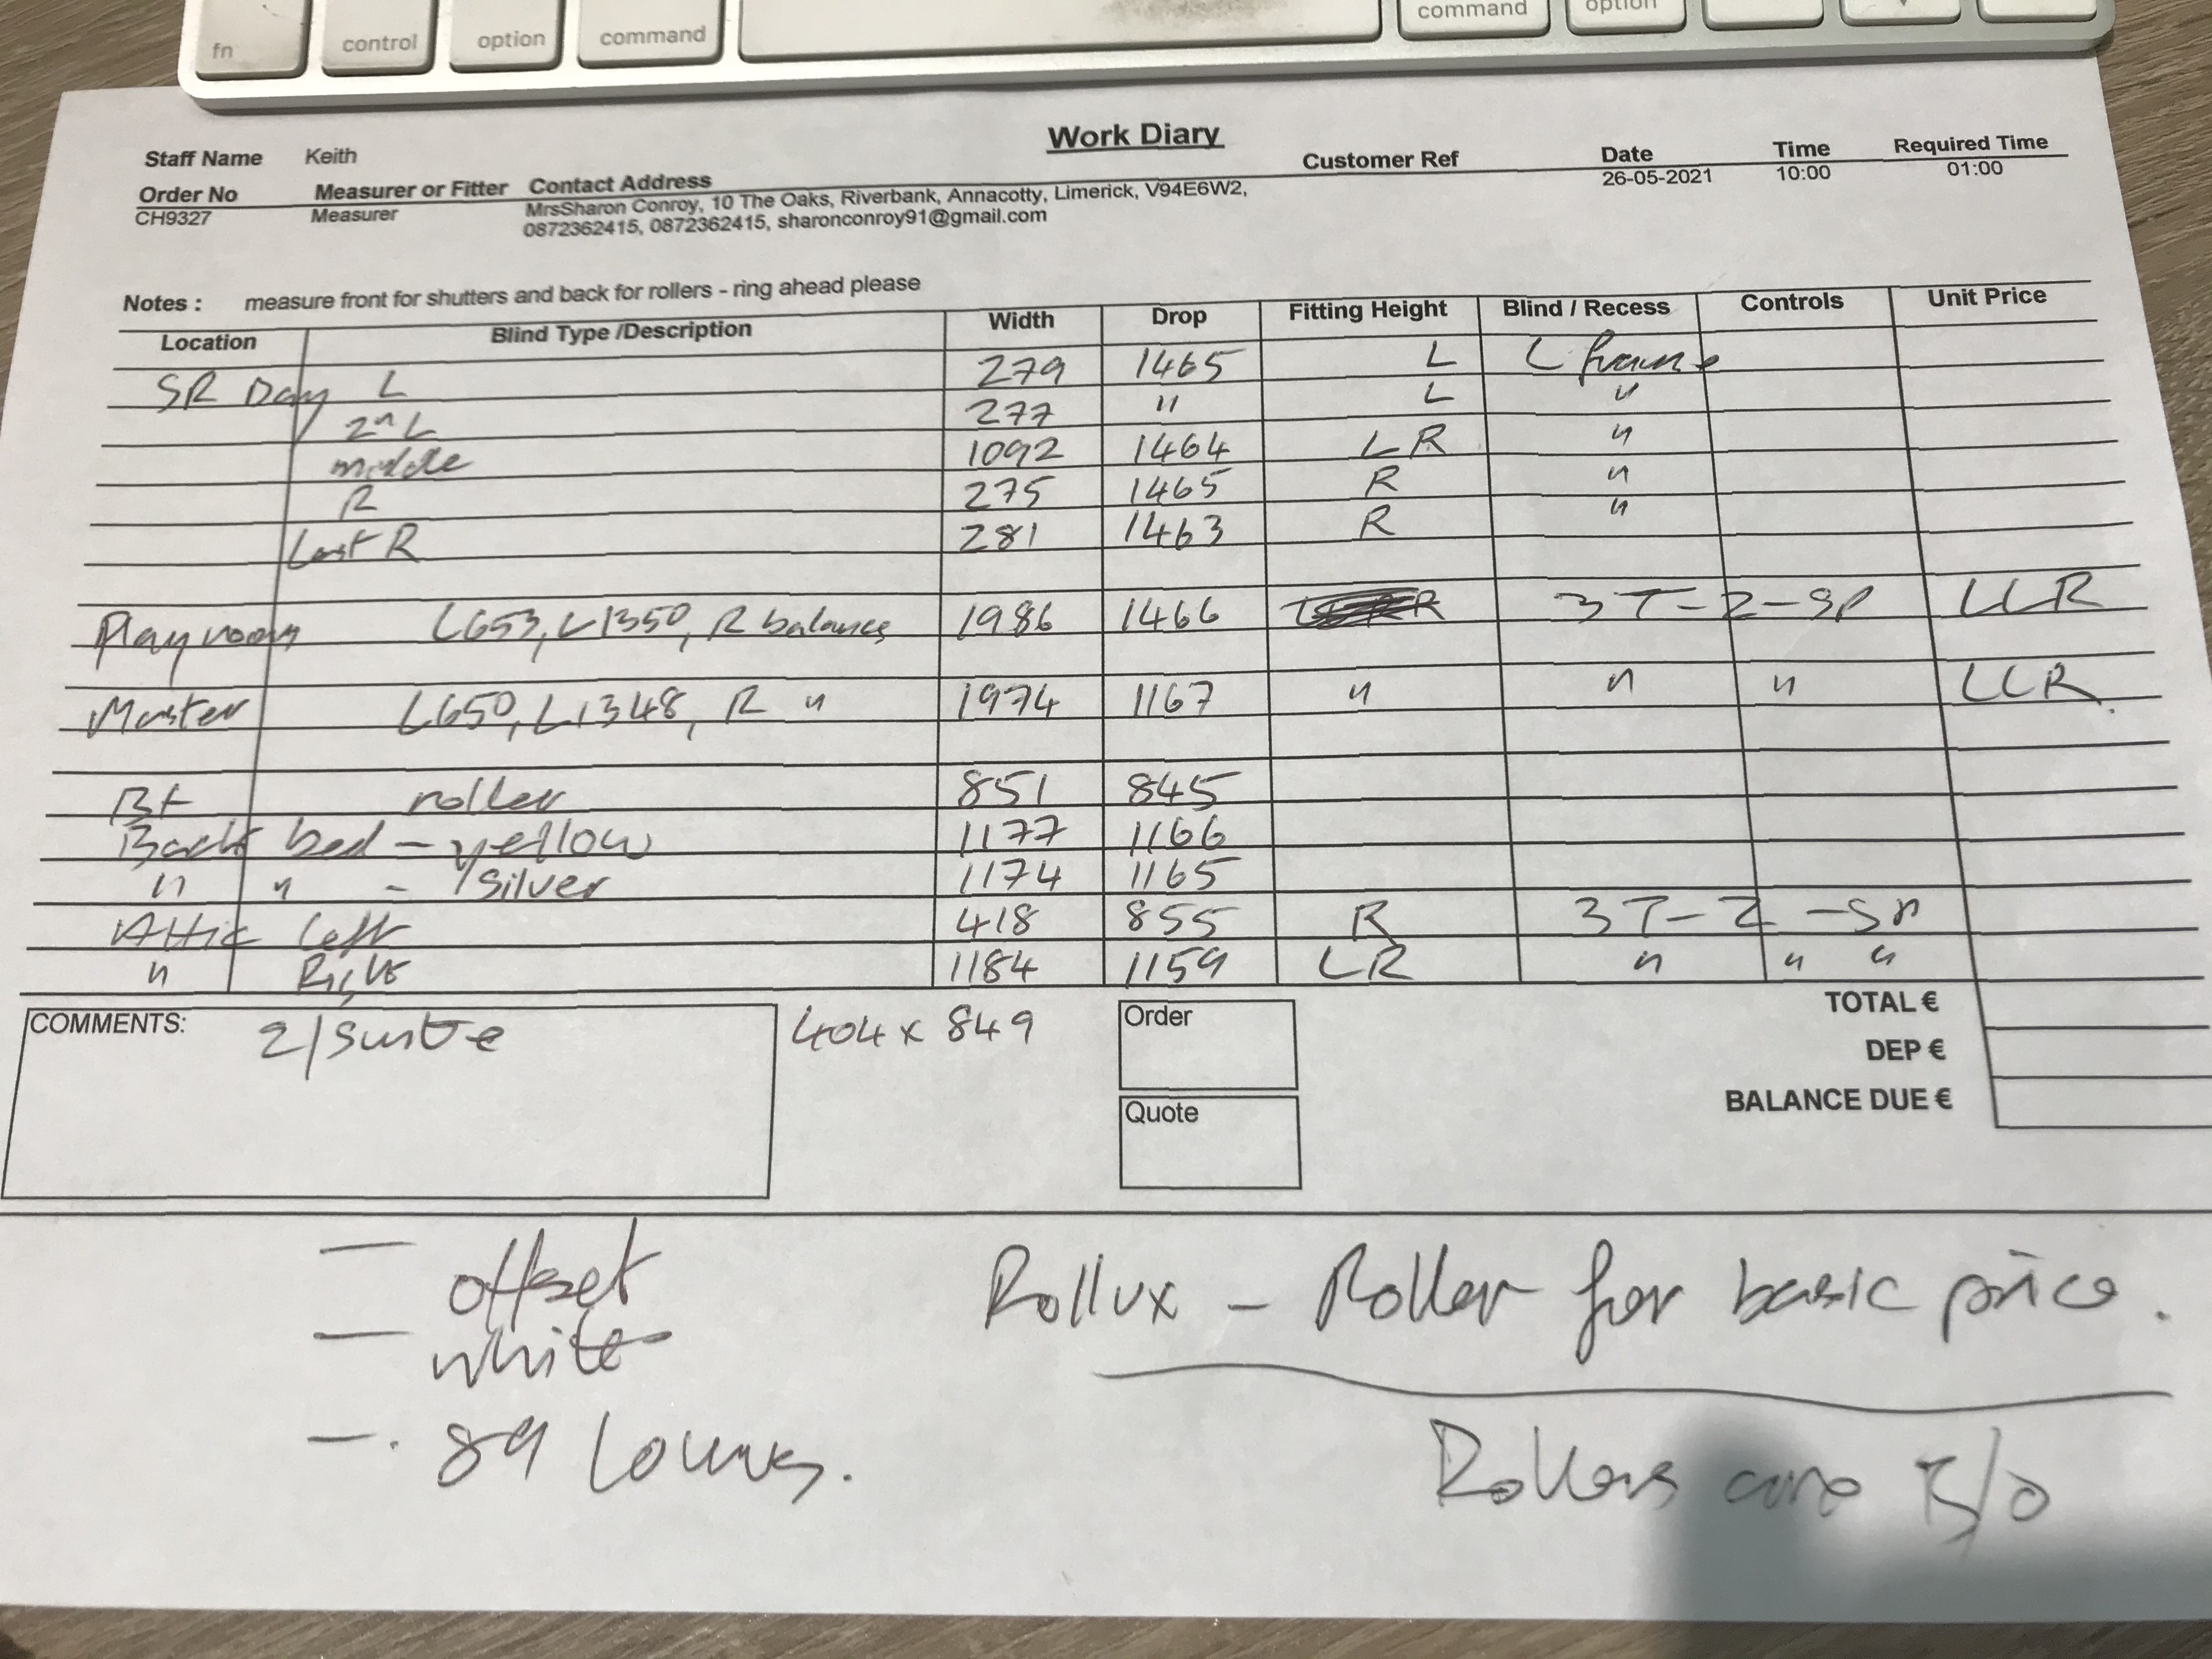 fn control option command command option
Work Diary
Staff Name Keith Customer Ref Date Time Required Time
Order No Measurer or Fitter Contact Address 26-05-2021 10:00 01:00
CH9327 Measurer MrsSharon Conroy, 10 The Oaks, Riverbank, Annacotty, Limerick, V94E6W2,
0872362415, 0872362415, sharonconroy91@gmail.com
Notes : measure front for shutters and back for rollers - ring ahead please
Location Blind Type /Description Width Drop Fitting Height Blind / Recess Controls Unit Price
SR Day L 279 1465 L L frame
2nd L 277 " L "
middle 1092 1464 LR "
R 275 1465 R "
Last R 281 1463 R "
Playroom L653, L1350, R balance 1986 1466 3T-2-SP LLR
Master L650, L1348, R " 1974 1167 " " " LLR
Bt roller 851 845
Back bed - yellow 1177 1166
" " - silver 1174 1165
Attic Left 418 855 R 3T-2-SP
" Right 1184 1159 LR " " "
COMMENTS: 404 x 849 Order TOTAL €
DEP €
Quote BALANCE DUE €
- offset
- white
- 89 Louvres.
Rollux - Roller for basic price.
Rollers are